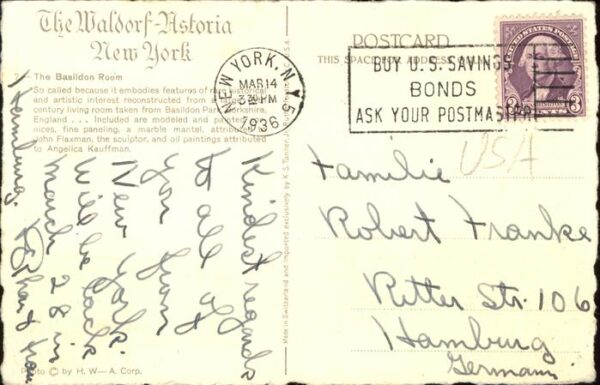 The Waldorf-Astoria
New York
The Basildon Room
So called because it embodies features of historical
and artistic interest reconstructed from a
century living room taken from Basildon Park, Yorkshire,
England . . . Included are modeled and painted
nices, fine paneling, a marble mantel, attributed
John Flaxman, the sculptor, and oil paintings attributed
to Angelica Kauffman.
Kindest regards
to all of
you from
New York.
Will be back
March 28 in
Hamburg.
Photo © by H. W— A. Corp.
Made in Switzerland and imported exclusively by K S Tanner,
U.S.A.
POSTCARD
THIS SPACE FOR ADDRESS
NEW YORK, N.Y.
MAR 14
3 30 PM
1936
BUY U.S. SAVINGS
BONDS
ASK YOUR POSTMASTER
UNITED STATES POSTAGE
3 3
USA
Familie
Robert Franke
Ritter Str. 106
Hamburg
Germany